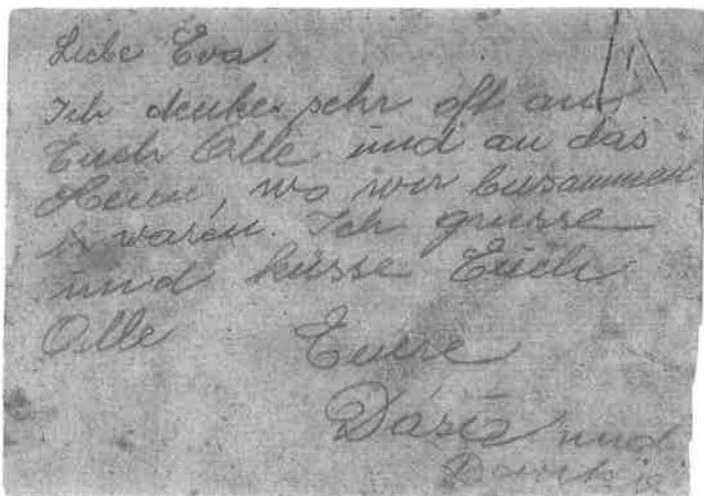 Liebe Eva.
Ich denke sehr oft an
Euch Alle und an das
Heim, wo wir busammen
waren. Ich grusse
und küsse Euch
Alle
Euere
und